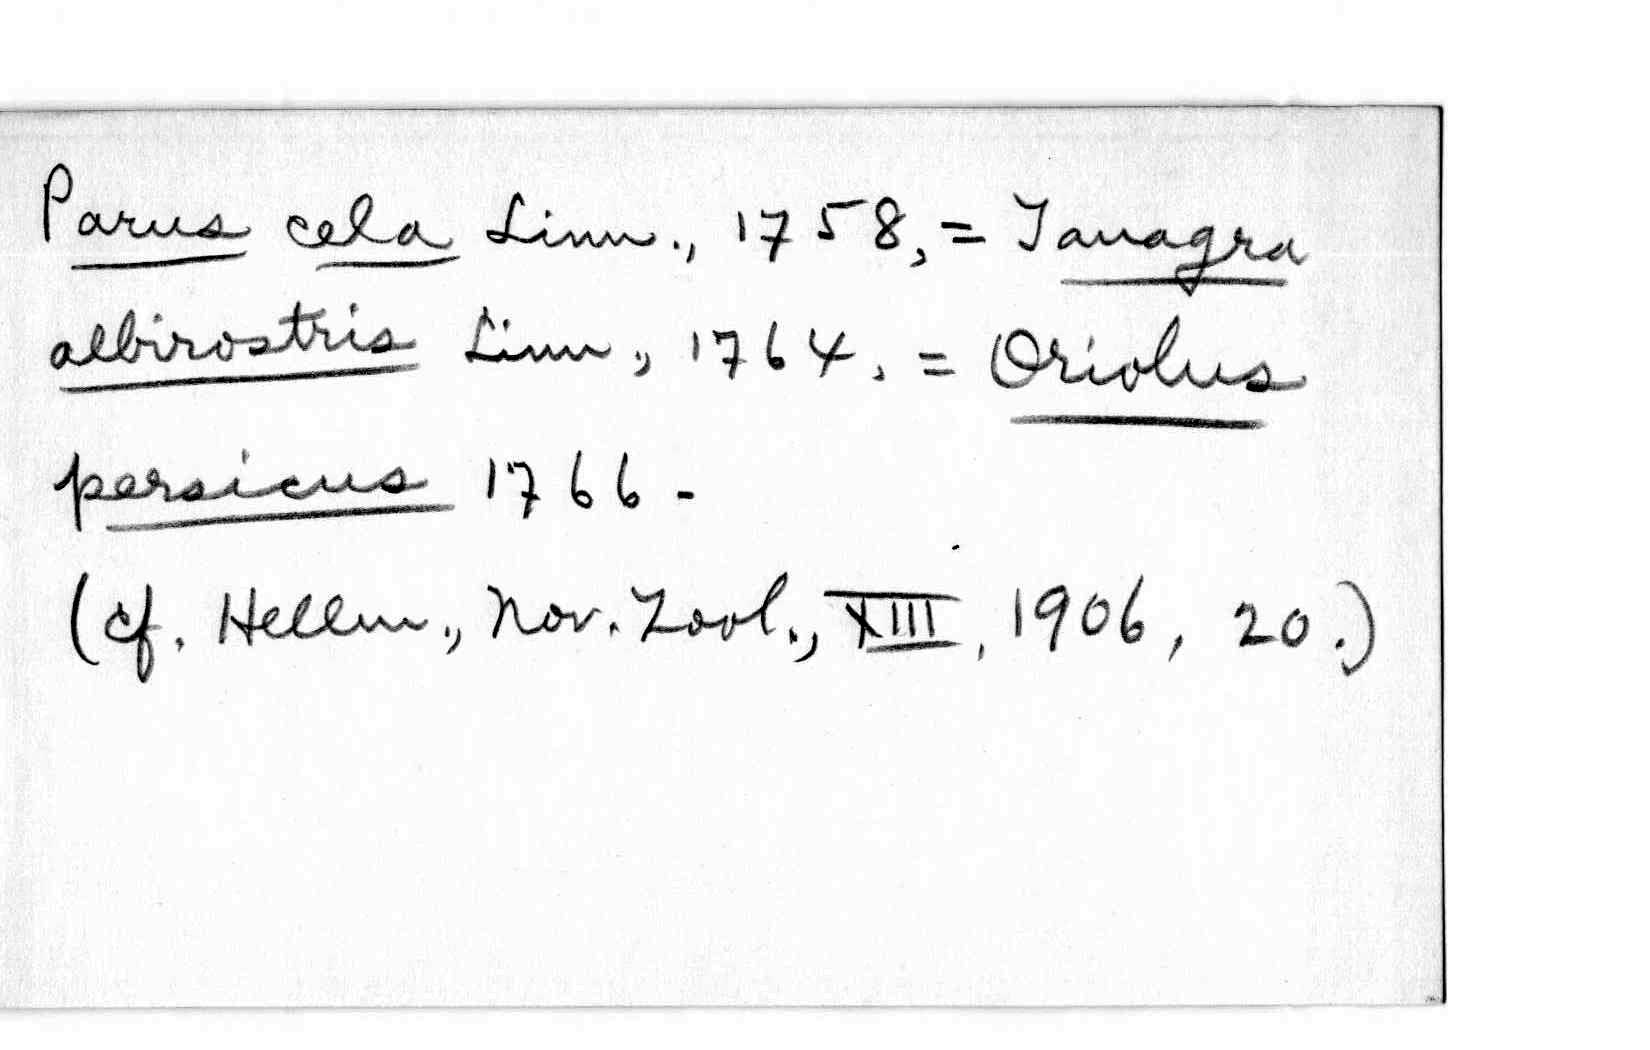 Parus cela Linn., 1758, = Tanagra
albirostris Linn., 1764, = Oriolus
persicus 1766 -
(cf. Hellm., Nov. Zool., XIII, 1906, 20.)